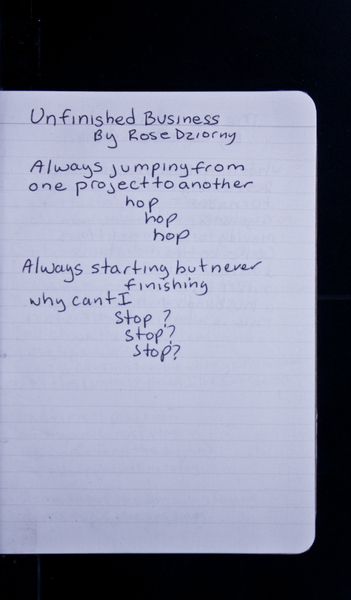 Unfinished Business
By Rose Dziorny
Always jumping from
one project to another
hop
hop
hop
Always starting but never
finishing
why cant I
stop ?
stop?
stop?